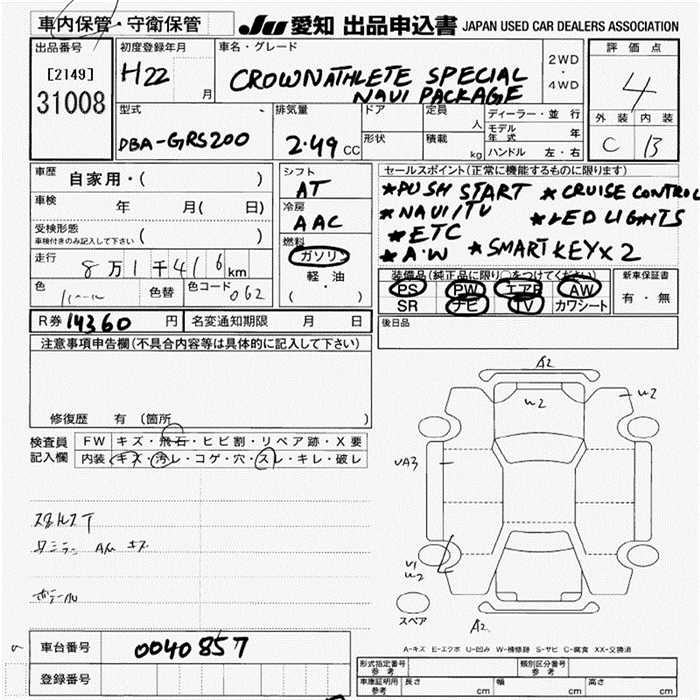 車内保管・守衛保管
JU 愛知 出品申込書 JAPAN USED CAR DEALERS ASSOCIATION
出品番号
[2149]
31008
初度登録年月
H22
月
車名・グレード
CROWN ATHLETE SPECIAL
NAVI PACKAGE
2WD
・
4WD
評価点
4
外装 内装
C B
型式
DBA-GRS200
排気量
2.49 CC
ドア
形状
定員
人
積載
kg
ディーラー・並行
モデル年式 年
ハンドル 左・右
車歴
自家用・( )
車検 年 月( 日)
受検形態
車検付きのみ記入して下さい ( )
走行
8万1千416km
色
色替
色コード 062
シフト
AT
冷房
AAC
燃料
ガソリン
軽・油
( ・ )
セールスポイント(正常に機能するものに限ります)
*PUSH START *CRUISE CONTROL
*NAVI/TV *LED LIGHTS
*ETC
*A/W *SMARTKEY X 2
装備品(純正品に限り○をつけてください)
PS PW エアB AW
SR ナビ TV カワシート
新車保証書
有・無
R券 14360 円 名変通知期限 月 日
後日品
注意事項申告欄(不具合内容等は具体的に記入して下さい)
修復歴 有 (箇所
検査員
記入欄
FW キズ・飛石・ヒビ割・リペア跡・X要
内装 キズ・汚レ・コゲ・穴・スレ・キレ・破レ
A2
W2
W2
UA3
U1
W2
スペア
A2
A-キズ E-エクボ U-凹み W-補修跡 S-サビ C-腐食 XX-交換済
車台番号 0040857
登録番号
形式指定番号
参考
類別区分番号
参考
車庫証明用
参考
長さ cm 幅 cm 高さ cm